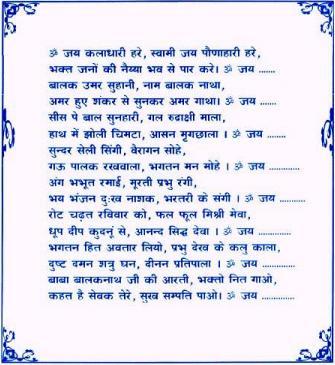 ॐ जय कलाधारी हरे, स्वामी जय पौणाहारी हरे,
भक्त जनों की नैय्या भव से पार करे। ॐ जय .......
बालक उमर सुहानी, नाम बालक नाथा,
अमर हुए शंकर से सुनकर अमर गाथा। ॐ जय .......
सीस पे बाल सुनहारी, गल रुद्राक्षी माला,
हाथ में झोली चिमटा, आसन मृगछाला । ॐ जय ........
सुन्दर सेली सिंगी, वैरागन सोहे,
गऊ पालक रखवाला, भगतन मन मोहे । ॐ जय ..........
अंग भभूत रमाई, मूरती प्रभु रंगी,
भय भंजन दुःख नाशक, भरतरी के संगी । ॐ जय ...........
रोट चढ़त रविवार को, फल फूल मिश्री मेवा,
धूप दीप कुदनूं से, आनन्द सिद्ध देवा । ॐ जय ............
भगतन हित अवतार लियो, प्रभु देख के कलु काला,
दुष्ट दमन शत्रु घन, दीनन प्रतिपाला । ॐ जय ..............
बाबा बालकनाथ जी की आरती, भक्तो नित गाओ,
कहत है सेवक तेरे, सुख सम्पति पाओ। ॐ जय ..............